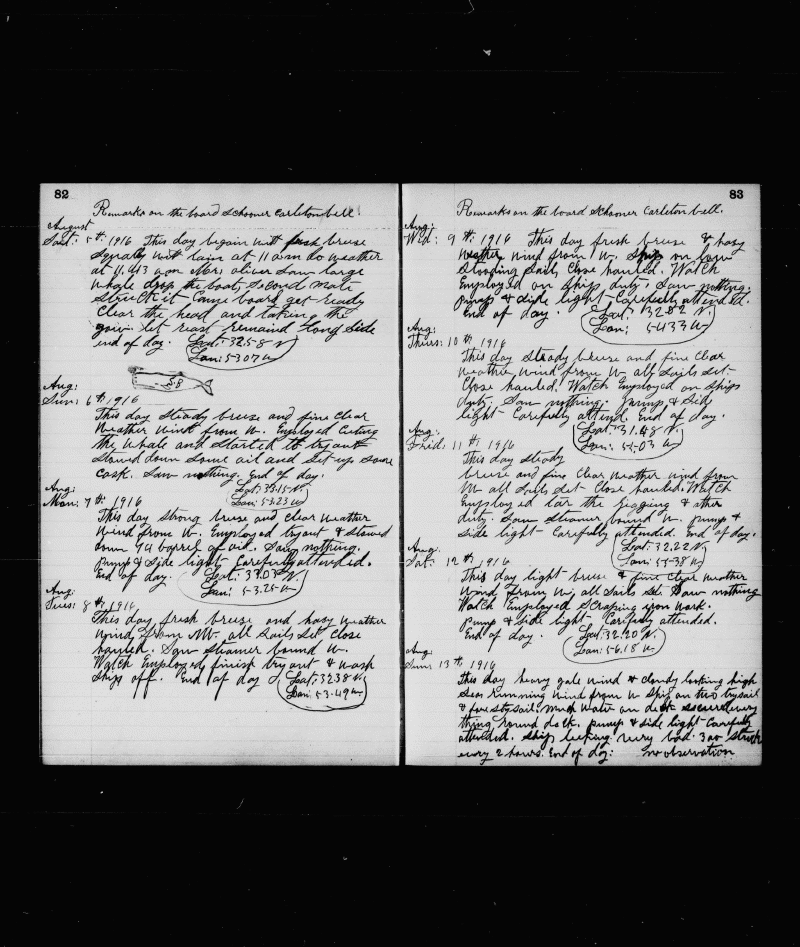 82
Remarks on the board Schooner Carleton bell.
August
Sat: 5th 1916 This day began with fresh breese
Squally with rain at 11 a.m. do weather
at 11.43 a.m. Mr. Oliver Saw large
whale drop the boat, Second mate
struck it Came board get ready
Clear the head and taking the
let rast remained long side
end of day. Lat: 32.58 N
Lon: 53.07 W
58
Aug:
Sun: 6th 1916
This day steady breese and fine clear
weather wind from W. Employed Cuting
the whale and started to tryout
Stowed down Some oil and Set up Some
cask. Saw nothing. End of day.
Lat: 33.15 N.
Lon: 53.23 W
Aug:
Mon: 7th 1916
This day strong breese and clear weather
Wind from W. Employed tryout & stowed
down 94 barrel of oil. Saw nothing.
Pump & Side light Carefully attended.
End of day. Lat: 33.03 N.
Lon: 53.25 W
Aug:
Tues: 8th 1916
This day fresh breese and hasy weather
Wind from NW. all Sails Set Close
hauled. Saw Steamer bound W.
Watch Employed finish tryout & wash
Ships off. End of day Lat: 32.38 N.
Lon: 53.49 W
83
Remarks on the board Schooner Carleton bell.
Aug:
Wed: 9th 1916 This day fresh breese & hasy
weather wind from W. Ship on
Sails, Close hauled. Watch
Employed on Ships duty. Saw nothing.
Pump & Side light Carefully attended.
End of day. Lat: 32.02 N.
Lon: 54.33 W
Aug:
Thurs: 10th 1916
This day Steady breese and fine Clear
weather, wind from W. all Sails Set
Close hauled. Watch Employed on Ships
duty. Saw nothing. Pump & Side
light Carefully attend. End of day.
Lat: 31.48 N.
Lon: 55.03 W
Aug:
Frid: 11th 1916
This day steady
breese and fine Clear weather wind from
W. all Sails Set Close hauled. Watch
Employed tar the rigging & other
duty. Saw Steamer bound W. Pump &
Side light Carefully attended. End of day.
Lat: 32.22 N.
Lon: 55.38 W
Aug:
Sat: 12th 1916
This day light breese & fine Clear weather
Wind from W, all Sails Set. Saw nothing
Watch Employed Scraping iron work.
Pump & Side light Carefully attended.
End of day. Lat: 32.20 N.
Lon: 56.18 W
Aug:
Sun: 13th 1916
This day heavy gale wind & cloudy looking high
Sea running wind from W Ship on two trysail
& fore stysail. much water on deck secured every
thing round deck. Pump & Side light Carefully
attended. Ship leaking very bad 300 Strok
every 2 hours. End of day: no observation